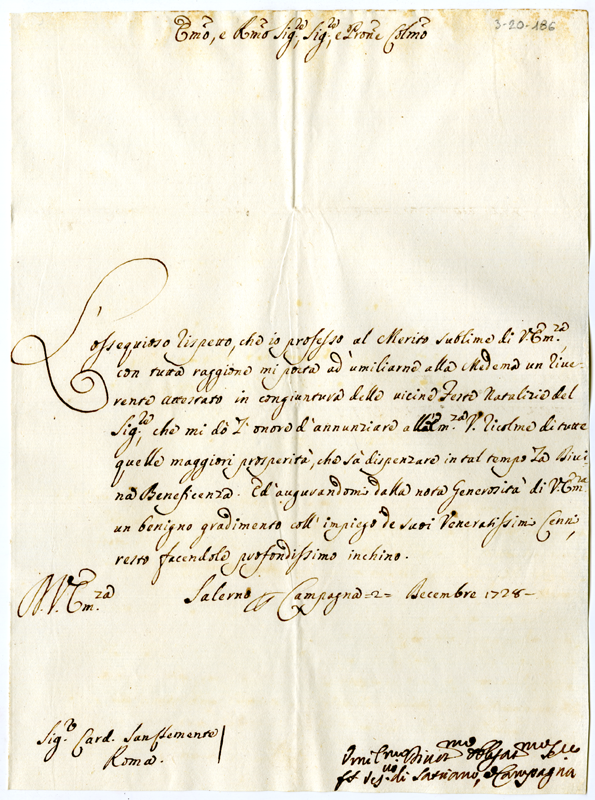 Emo, e Rmo Sig.re, Sig.re, e Prone Colmo
3-20-186
L'ossequioso rispetto, che io professo al Merito sublime di V. Em.za,
con tutta raggione mi porta ad' umiliarne alla Medema un rive-
rente attestato in congiuntura delle vicine Feste Natalizie del
Sig.re, che mi dà l'onore d'annunziare all'Em.za V. ricolme di tutte
quelle maggiori prosperità, che sà dispenzare in tal tempo la Divi-
na Beneficenza. Ed' augurandomi dalla nota Generosità di V. Em.za
un benigno gradimento coll' impiego de suoi Veneratissimi Cenni,
resto facendole profondissimo inchino.
V. Em.za
Salerno Campagna =2= Decembre 1728-
Sig.re Card. Sanclemente
Roma.
Umil.mo Divot.mo Oblgat.mo
di Satriano, e Campagna